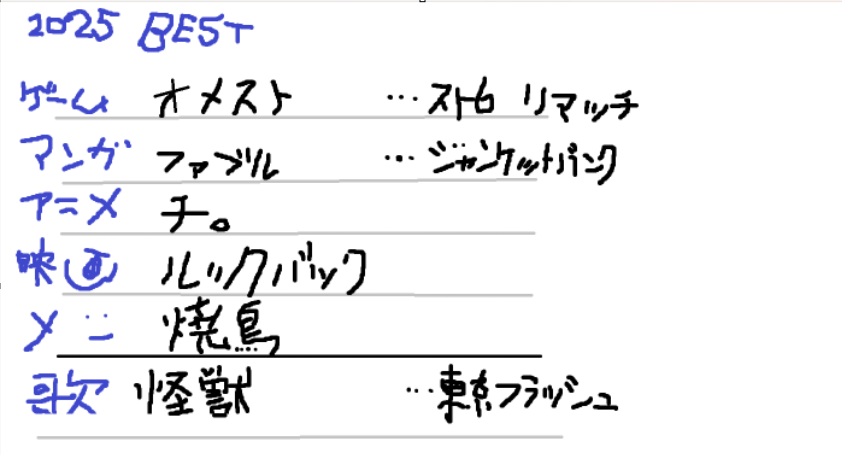 2025 BEST
ゲーム オメスト …スト6 リマッチ
マンガ ファブル …ジャンケットバンク
アニメ チ。
映画 ルックバック
メニ 焼鳥
歌 怪獣 …東京フラッシュ